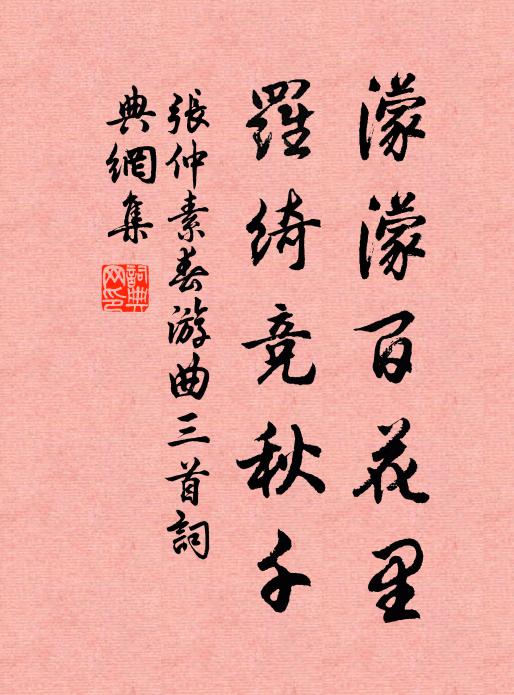 濛濛百花里
羅綺竞秋千
張仲素春游曲三首詞
典網集
詞典网印